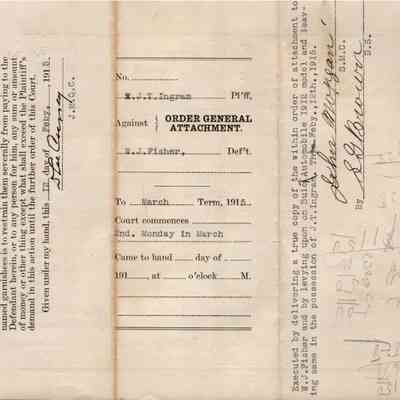 named garnishees is to restrain them severally from paying to the
Defendant herein, or to any person for him, any sum or amount
of money or other thing except what shall exceed the Plaintiff's
demand in this action until the further order of this Court.
Given under my hand, this 12 day of Feby. , 1915.
J.M.C.C.
No.
J.T. Ingram Pl'ff,
Against
ORDER GENERAL
ATTACHMENT.
W.J.Fisher, Def't.
To March Term, 1915
Court commences
2nd. Monday in March
Came to hand day of
191 , at o'clock M.
Executed by delivering a true copy of the within order of attachment to
W.J.Fisher and by levying upon on Buick Automobile 1912 model and leav-
ing same in the possession of J.T.Ingram, This Feby.,12th.,1915.
John Morgan
S.M.C.
By
D.S.